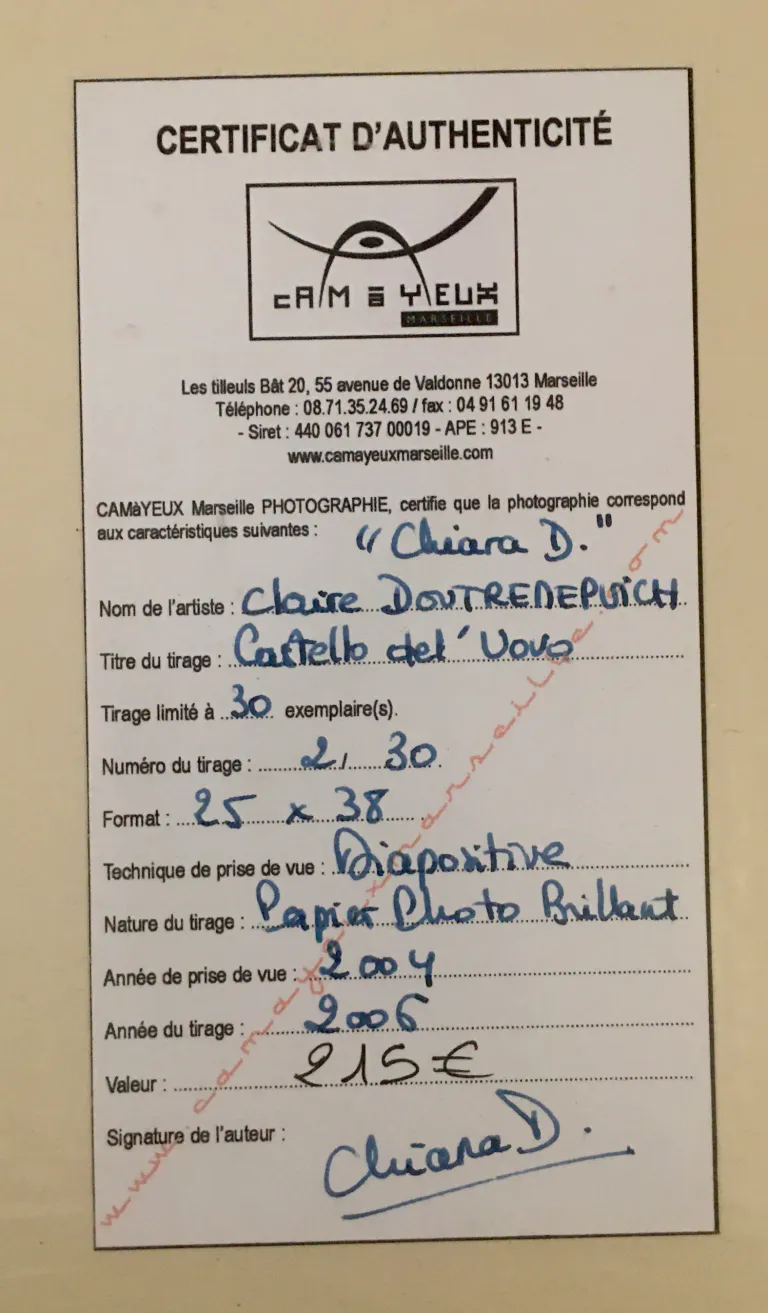 CERTIFICAT D'AUTHENTICITÉ
cAMàYEUX
MARSEILLE
Les tilleuls Bât 20, 55 avenue de Valdonne 13013 Marseille
Téléphone : 08.71.35.24.69 / fax : 04 91 61 19 48
- Siret : 440 061 737 00019 - APE : 913 E -
www.camayeuxmarseille.com
CAMàYEUX Marseille PHOTOGRAPHIE, certifie que la photographie correspond
aux caractéristiques suivantes : "Chiara D."
Nom de l'artiste : Claire DOUTREMEPUICH
Titre du tirage : Castello del' Uovo
Tirage limité à 30 exemplaire(s).
Numéro du tirage : 2 / 30
Format : 25 x 38
Technique de prise de vue : Diapositive
Nature du tirage : Papier Photo Brillant
Année de prise de vue : 2004
Année du tirage : 2006
Valeur : 215€
Signature de l'auteur : Chiara D.
www.camayeuxmarseille.com